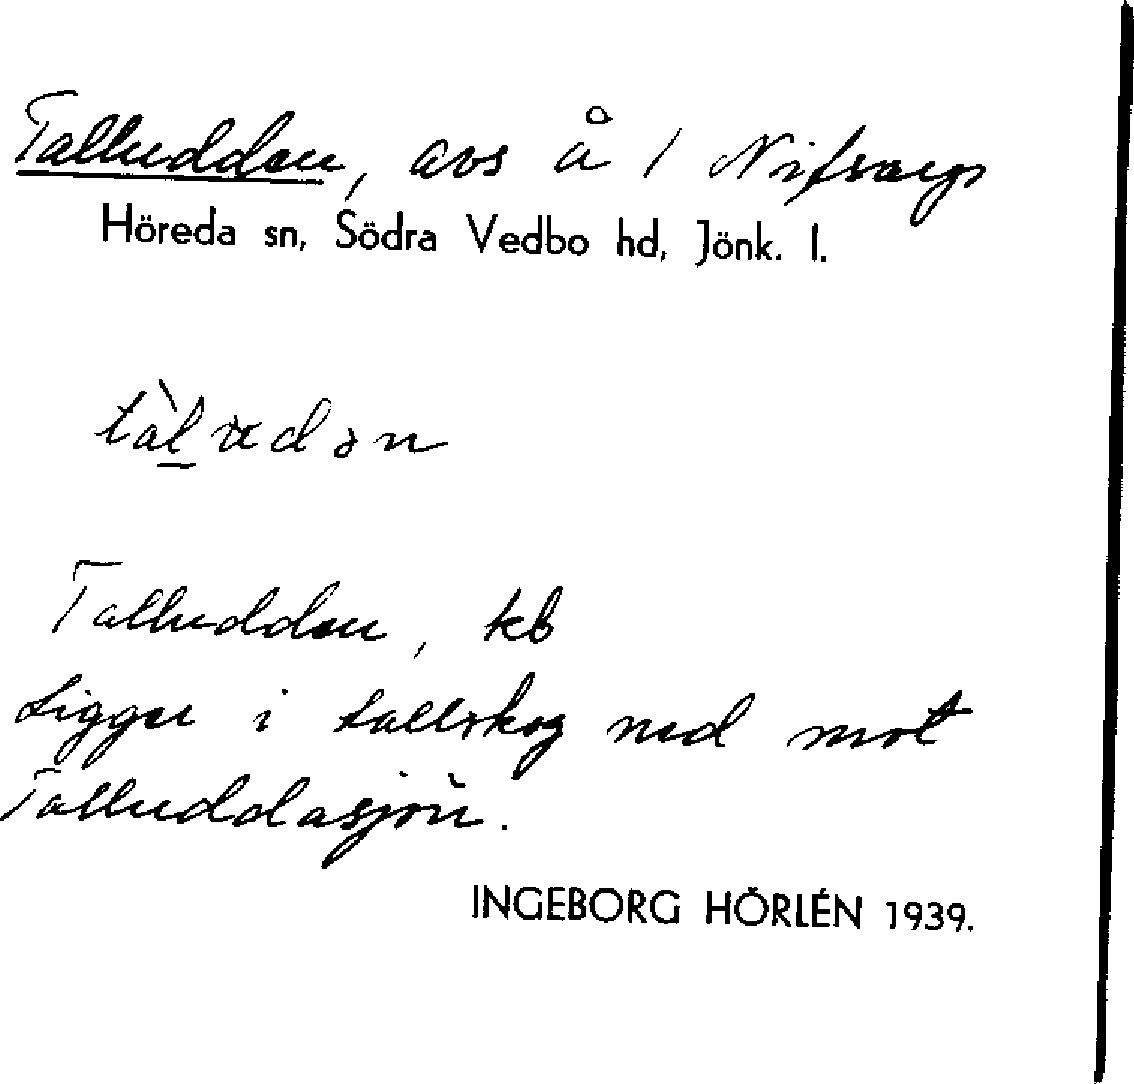 Talludden, avs å 1 Nifvarp
Höreda sn, Södra Vedbo hd, Jönk. l.
tàludən
Talludden, kb
Ligger i tallskog ned mot
Talluddasjön.
INGEBORG HÖRLÉN 1939.